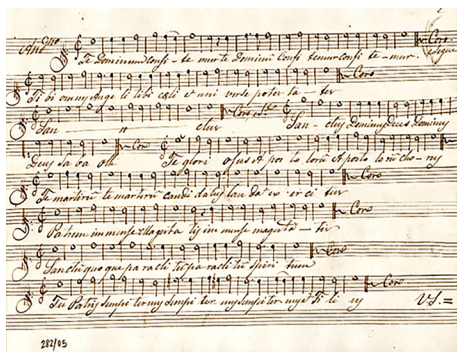 And.no Coro Segue
Te Dominum confi - te mur te Domini Confi temur confi te - mur.
Coro
Ti bi omny Ange li tibi cæli et uni verse potes ta - tes
Coro
San - ctus San - ctus Dominus Deus Dominus
Deus sa ba oth Coro Te glori osus A pos to loru A posto loru cho - rus
Coro
Te martirũ te martirũ candi datus lau dat ex - er ci tus
Coro
Patrem immense Magesta tis im mense magesta - tis
Coro
Sanctũ quoque para cli tũ para cli tũ Spiri tum
Coro
Tu Patris sempi ternus sempi ter- nus sempi ter- nus es fi li us V.S.=
282/03